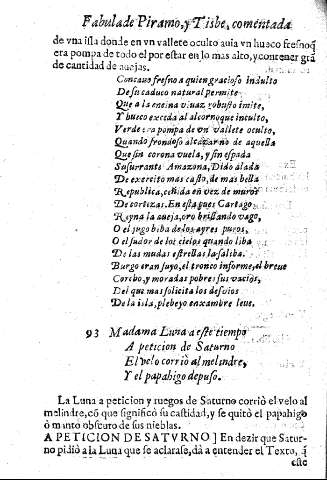 Fabula de Piramo, y Tisbe, comentada
de vna isla donde en vn vallete oculto auia vn hueco fresnoq̃
era pompa de todo el por estar en lo mas alto, y contener grã
de cantidad de auejas.
Concauo fresno a quien gracioso indulto
De su caduco natural permite
Que a la encina viuaz robusto imite,
Y hueco exceda al alcornoque inculto,
Verde era pompa de vn vallete oculto,
Quando frondoso alcazar no de aquella
Que sin corona vuela, y sin espada
Susurrante Amazona, Dido alada
De exercito mas casto, de mas bella
Republica, ceñida en vez de muros
De cortezas. En esta pues Cartago
Reyna la aueja, oro brillando vago,
O el jugo beba de los ayres puros,
O el sudor de los cielos quando liba
De las mudas estrellas la saliba.
Burgo eran suyo, el tronco informe, el breue
Corcho, y moradas pobres sus vacios,
Del que mas solicita los desuios
De la isla, plebeyo enxambre leue.
93 Madama Luna a este tiempo
A peticion de Saturno
El velo corriò al melindre,
Y el papahigo depuso.
La Luna a peticion y ruegos de Saturno corriò el velo al
melindre, cõ que significò su castidad, y se quitò el papahigo
ò manto obscuro de sus nieblas.
A PETICION DE SATVRNO ] En dezir que Satur-
no pidiò a la Luna que se aclarase, dà a entender el Texto, q̃
este